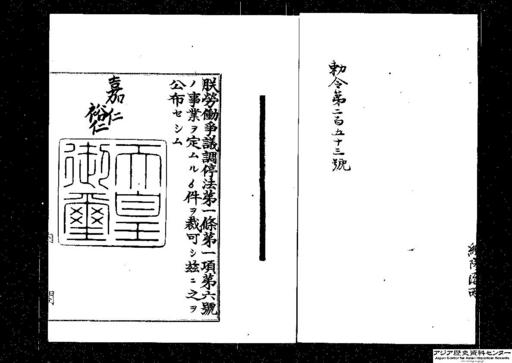 勅令第二百五十三號
朕勞働爭議調停法第一條第一項第六號
ノ事業ヲ定ムルノ件ヲ裁可シ茲ニ之ヲ
公布セシム
嘉仁
裕仁
天皇
御璽
内閣
アジア歴史資料センター
Japan Center for Asian Historical Records